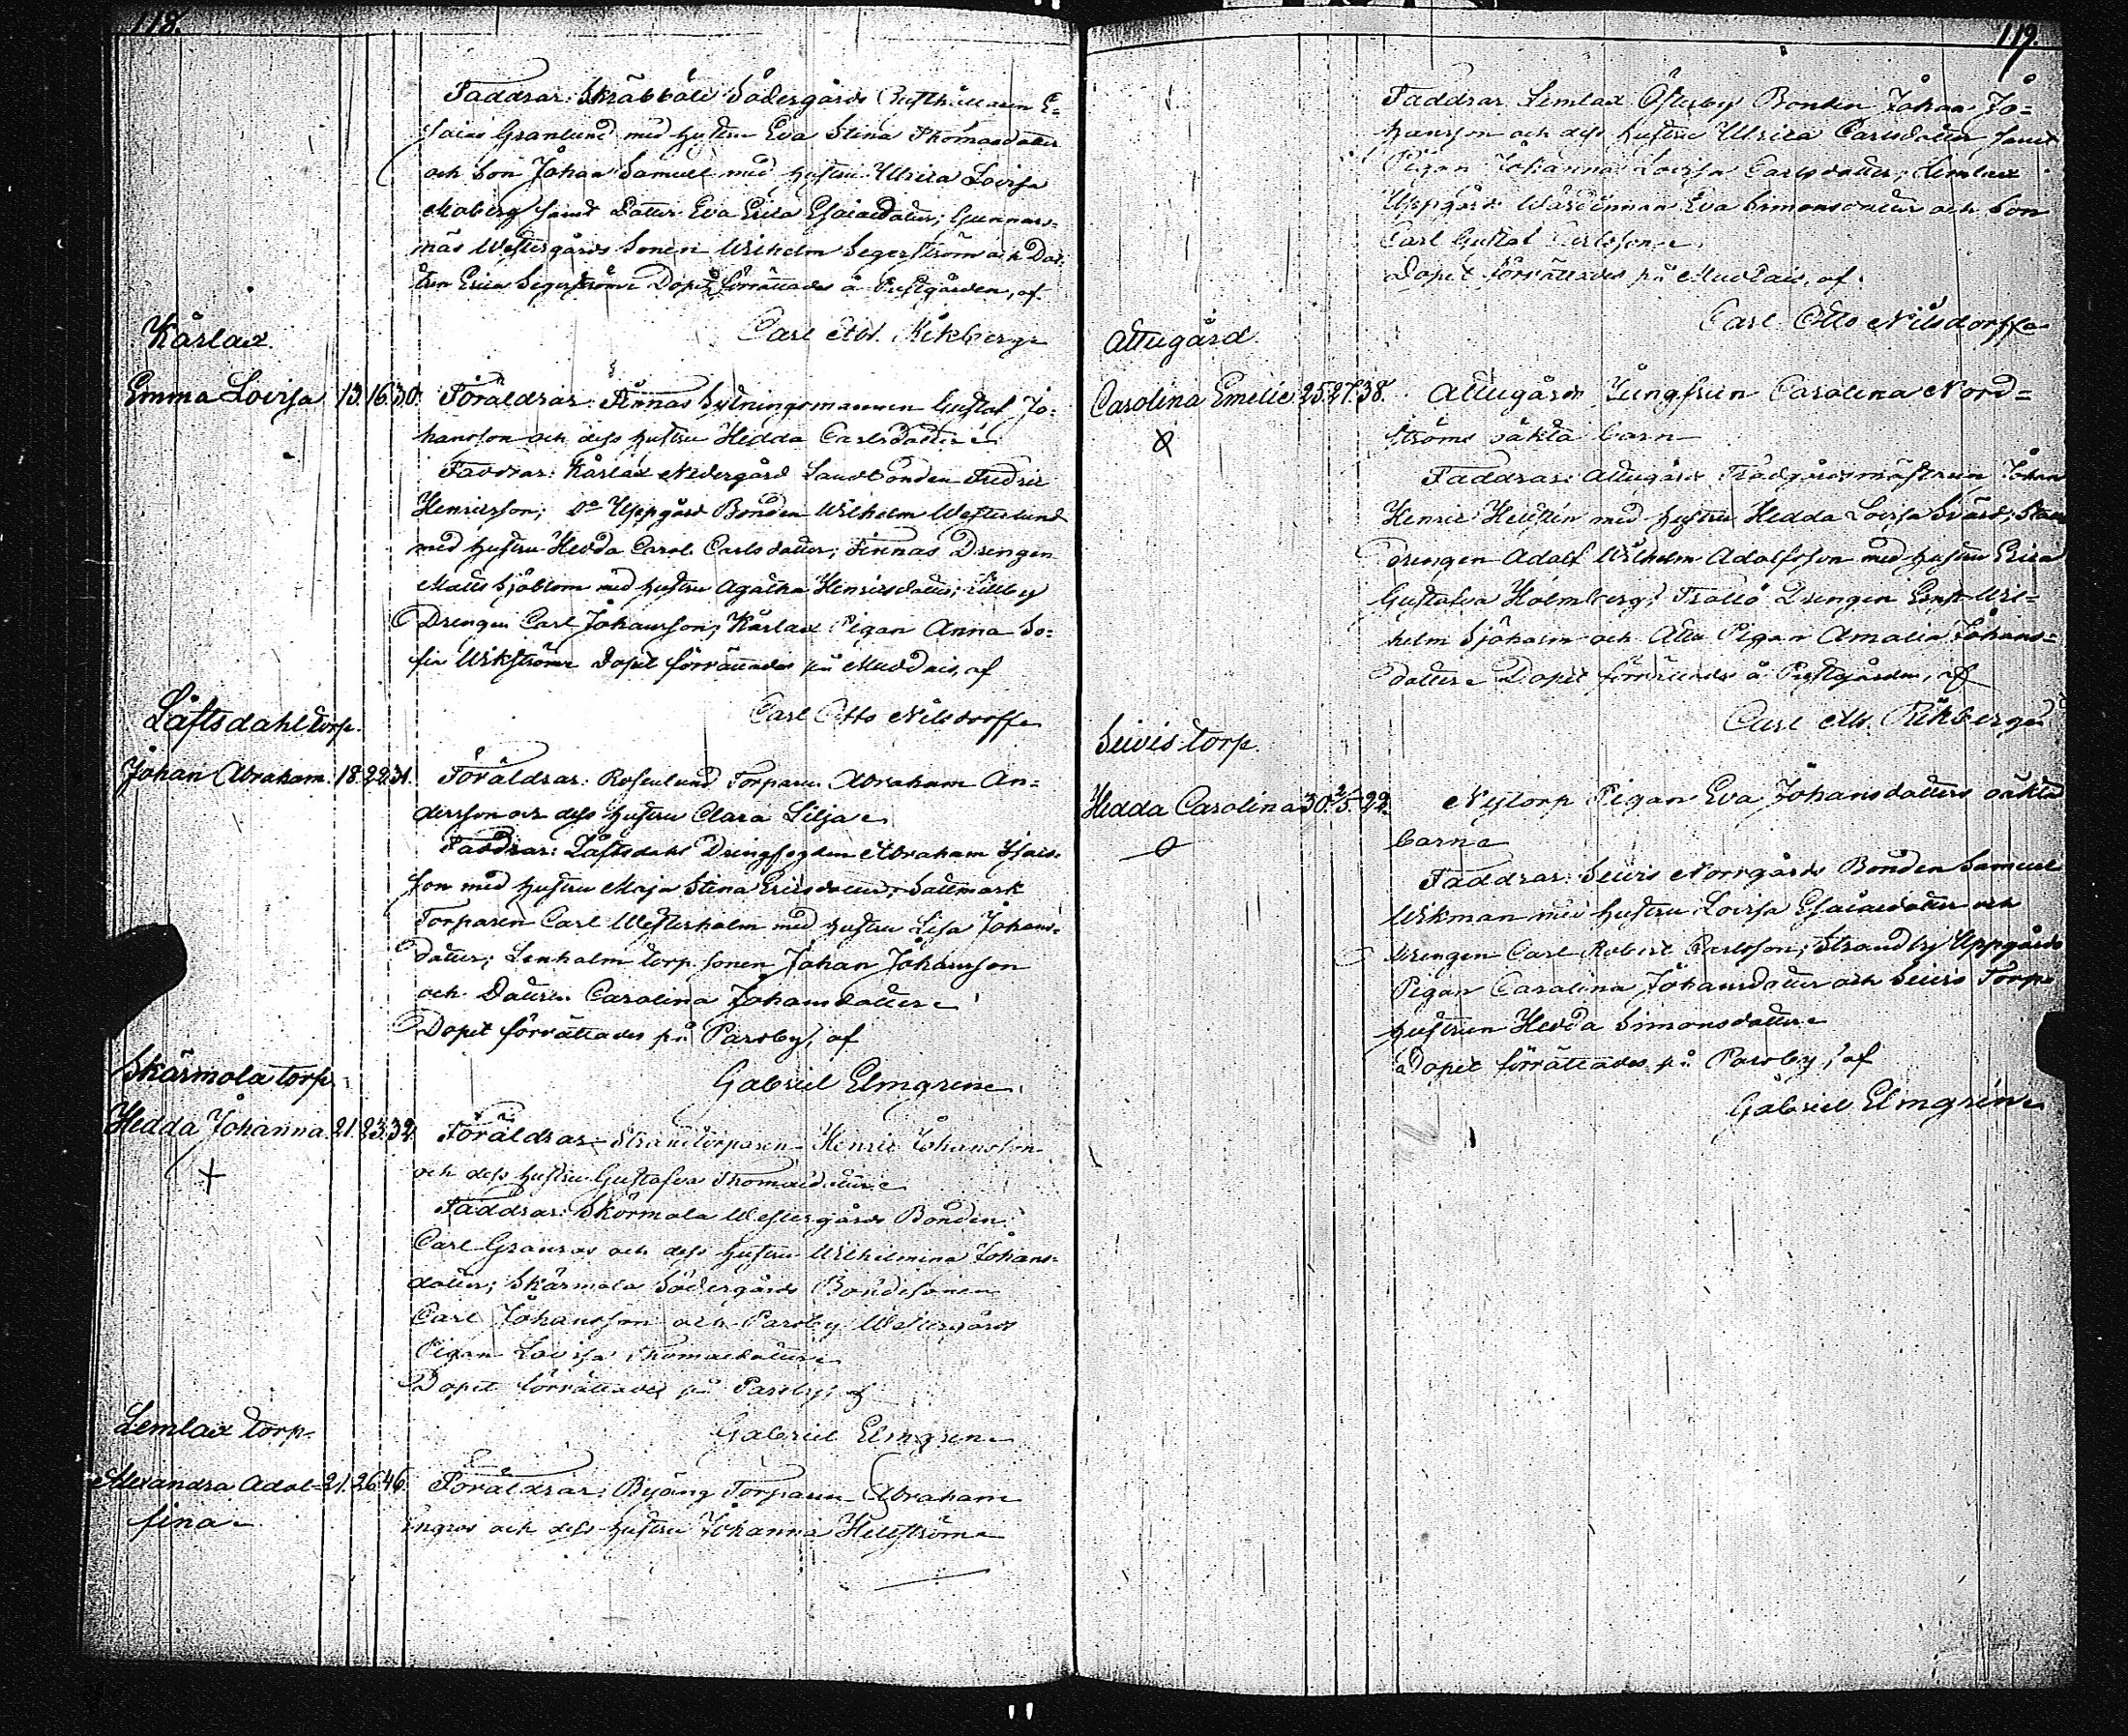 118.
Faddrar: Skräbböle Södergårds Rusthållaren E=
saias Granlund med hustru Eva Stina Thomasdotter
och Son Johan Samuel med hustru Ulrica Lovisa
Moberg samt Dotter Eva Erica Esaiaedotter; Gunnars=
näs Westergårds Sonen Wilhelm Segerström och Dot=
tren Erica Segerström Dopet förrättades å Prestgården, af
Carl Ad. Rikberg
Kårlax.
Emma Lovisa 13. 16. 30. Föräldrar: Finnas Sytningsmannen Gustaf Jo=
hansson och dess hustru Hedda Carlsdotter
Faddrar: Kårlax Nedergård Landbonden Fredric
Henricsson; Do Uppgård Bonden Wilhelm Westerlund
med hustru Hedda Carol. Carlsdotter; Finnas Drengen
Matts Sjöblom med hustru Agatha Henricsdotter; Lillby
Drengen Carl Johansson; Kårlax Pigan Anna So=
fia Wikström Dopet förrättades på Muddais, af
Carl Otto Nilsdorff
Låftsdahl torp.
Johan Abraham. 18. 22. 31. Föräldrar: Rosenlund Torparen Abraham An=
dersson och dess hustru Clara Lilja
Faddrar: Låftsdahl Drengfogden Abraham Isais=
son med hustru Maja Stina Ericsdotter; Sattmark
Torparen Carl Westerholm med hustru Lisa Johans=
dotter; Lenholm torp. sonen Johan Johansson
och Dottren Carolina Johansdotter
Dopet förrättades på Parsby, af
Gabriel Elmgren
Skärmola torp.
Hedda Johanna. 21. 23. 32. Föräldrar: Strandtorparen Henric Johansson
och dess hustru Gustafva Thomasdotter
Faddrar: Skärmola Westergårds Bonden
Carl Granros och dess hustru Wilhelmina Johans=
dotter; Skärmola Södergårds Bondesonen
Carl Johansson och Parsby Westergårds
Pigan Lovisa Thomasdotter
Dopet förrättades på Parsby, af
Gabriel Elmgren
Lemlax torp.
Alexandra Adol= 21. 26. 46. Föräldrar: Byäng Torparen Abraham
fina och dess hustru Johanna Hellström
119.
Faddrar Lemlax Österby Bonden Johan Jo=
hansson och dess hustru Ulrica Carlsdotter samt
Pigan Johanna Lovisa Carlsdotter; Lemlax
Uppgård Wärdinnan Eva Simonsdotter och Son
Carl Gustaf Carlsson
Dopet förrättades på Muddais, af
Carl Otto Nilsdorff
Attugård.
Carolina Emelie 25. 27. 38. Attugårds Jungfrun Carolina Nord=
ströms oäkta barn
Faddrar: Attugårds Trädgårdsmästaren Johan
Henric Hellstén med hustru Hedda Lovisa Svärd;
drengen Adolf Wilhelm Adolfsson med hustru Erica
Gustafva Holmberg; Drengen Ernst Wil=
helm Sjöholm och Attu Pigan Amalia Johans=
dotter Dopet förrättades å Prestgården, af
Carl Ad. Rikberg
Seivis torp.
Hedda Carolina 30. 2/5. 22. Nytorp Pigan Eva Johansdotters oäkta
barn
Faddrar: Seivis Norrgårds Bonden Samuel
Wikman med hustru Lovisa Esaiaedotter och
drengen Carl Robert Carlsson; Strandby Uppgårds
Pigan Carolina Johansdotter och Seivis Torp.
hustrun Hedda Simonsdotter
Dopet förrättades på Parsby, af
Gabriel Elmgren